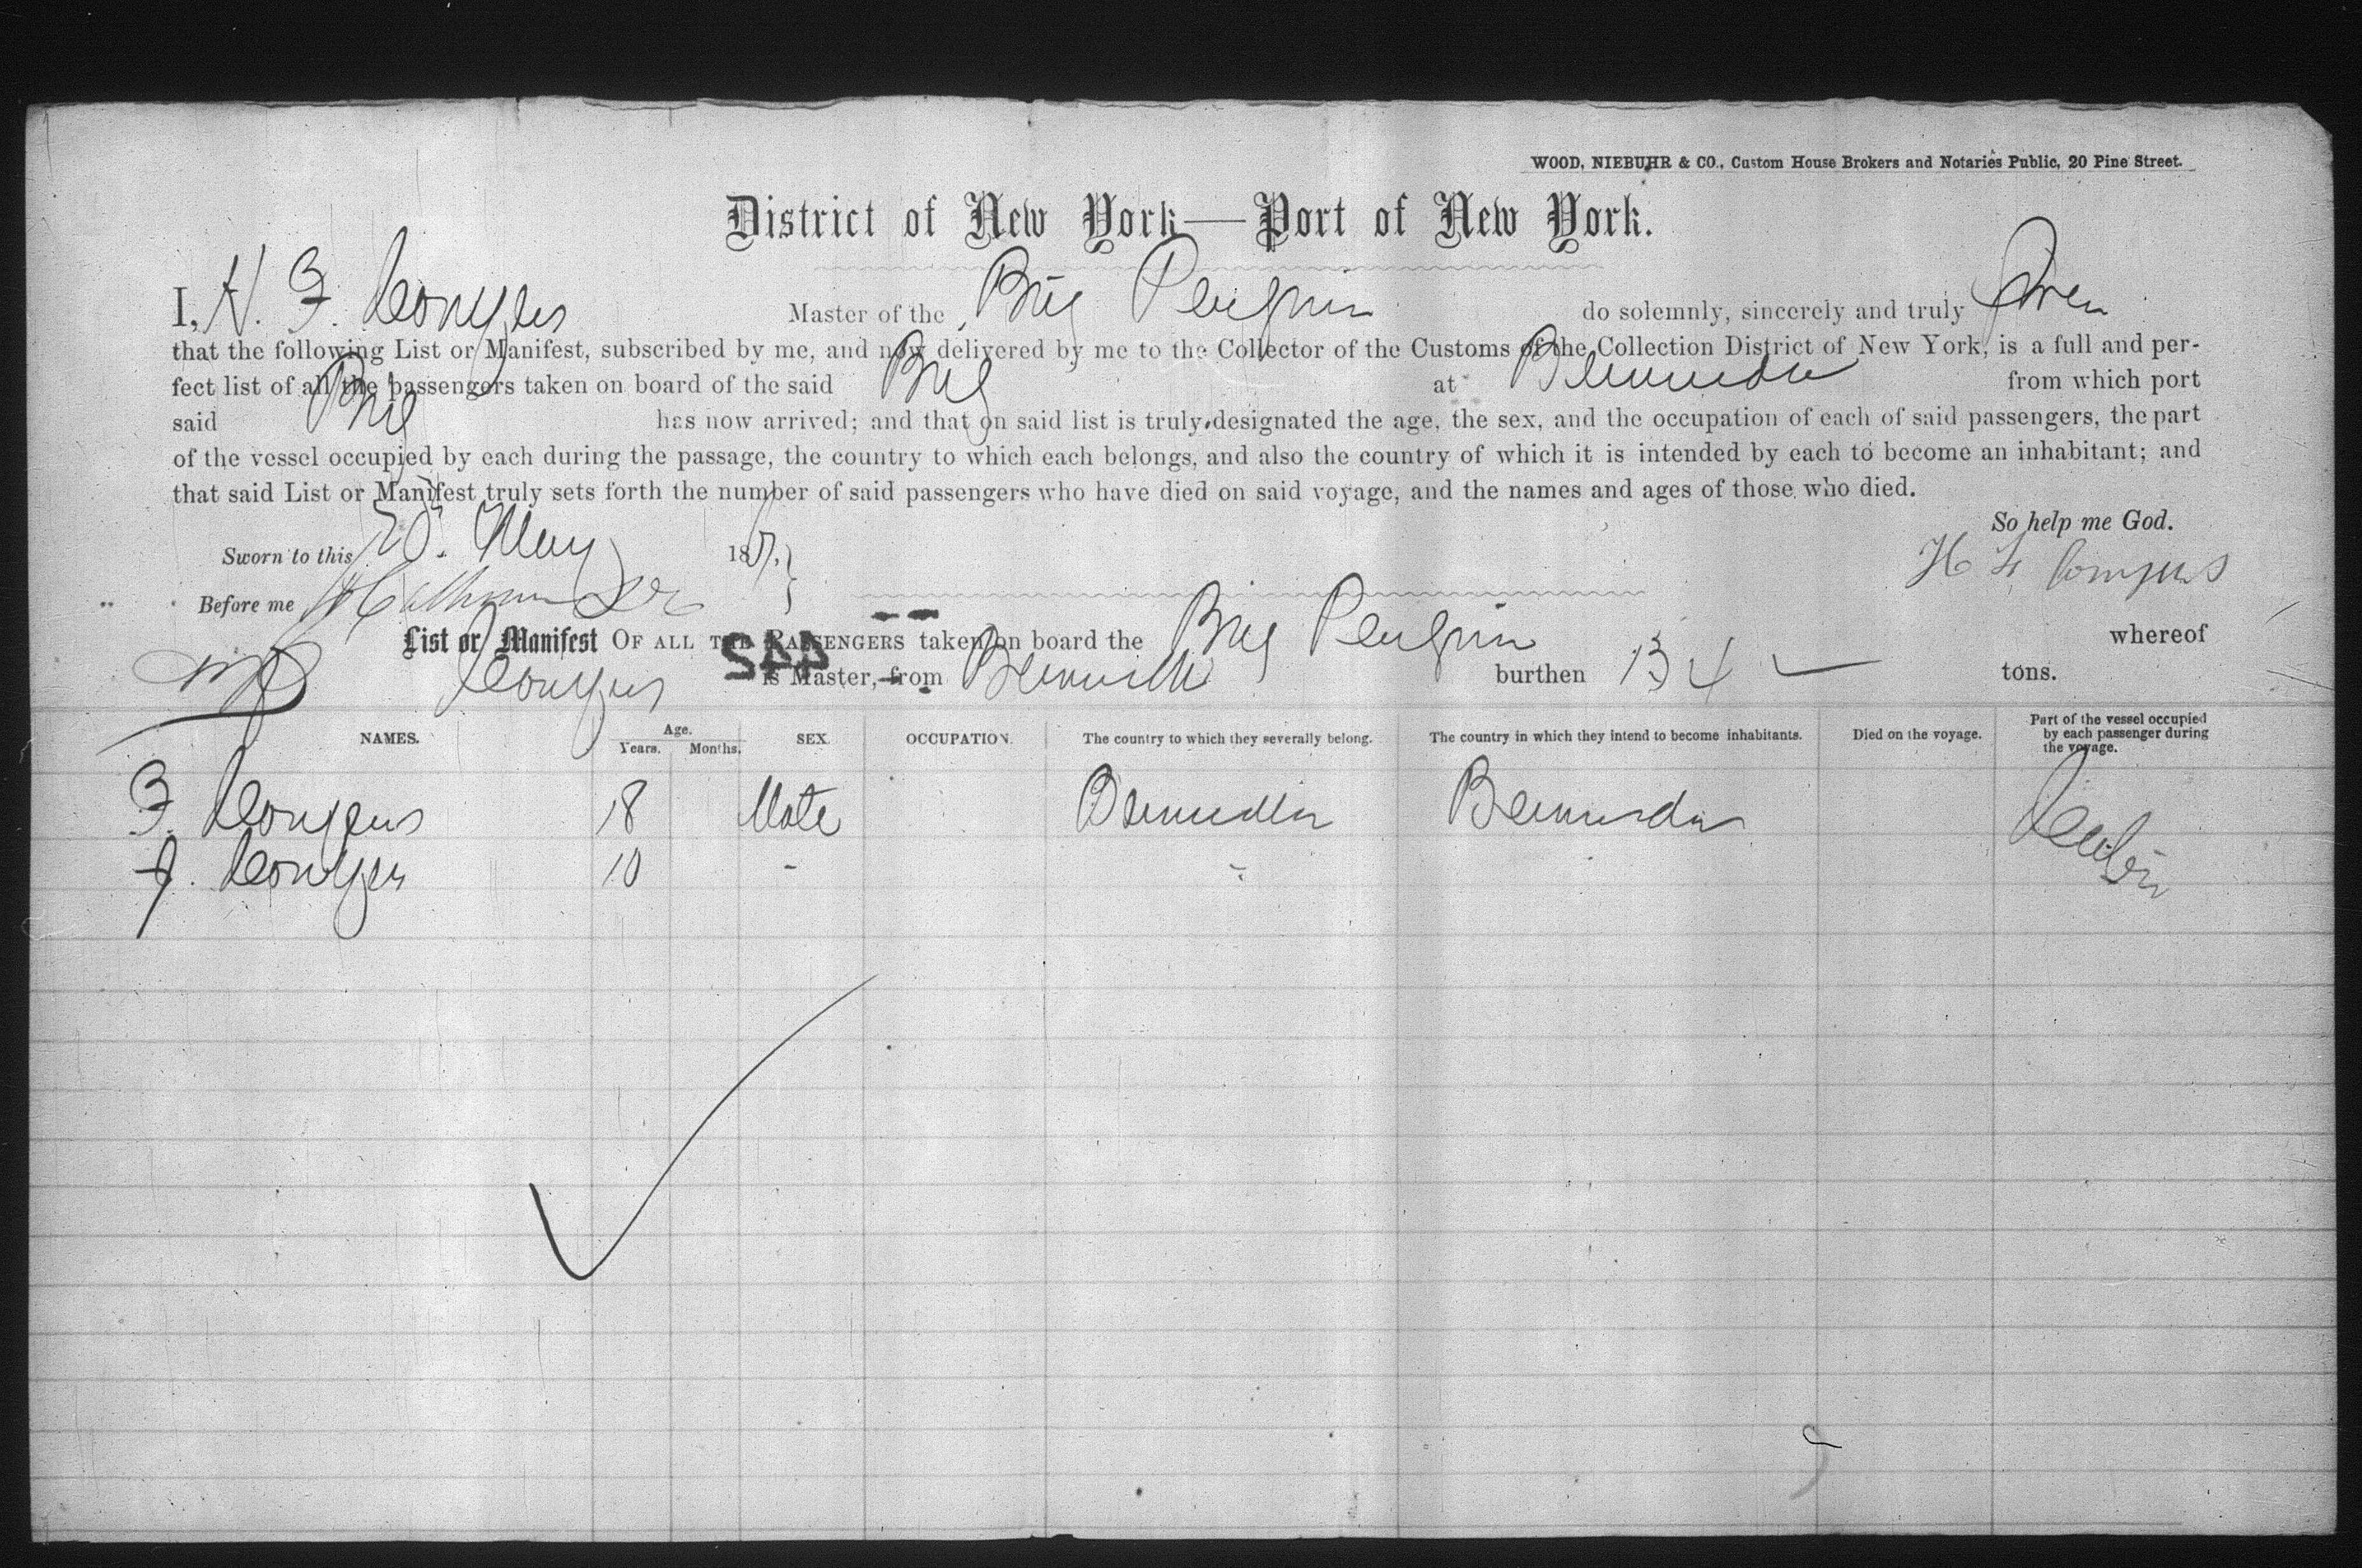 WOOD, NIEBUHR & CO., Custom House Brokers and Notaries Public, 20 Pine Street.
District of New York—Port of New York.
I, H. F. Conyers Master of the Brig Penguin do solemnly, sincerely and truly Swear
that the following List or Manifest, subscribed by me, and now delivered by me to the Collector of the Customs of the Collection District of New York, is a full and per-
fect list of all the passengers taken on board of the said Brig at Bermuda from which port
said Brig has now arrived; and that on said list is truly designated the age, the sex, and the occupation of each of said passengers, the part
of the vessel occupied by each during the passage, the country to which each belongs, and also the country of which it is intended by each to become an inhabitant; and
that said List or Manifest truly sets forth the number of said passengers who have died on said voyage, and the names and ages of those who died.
So help me God.
Sworn to this 20. May 187
H F Conyers
Before me
List or Manifest OF ALL THE PASSENGERS taken on board the Brig Penguin whereof
442
Conyers is Master, from Bermuda burthen 134 tons.
NAMES. Age. Years. Months. SEX. OCCUPATION. The country to which they severally belong. The country in which they intend to become inhabitants. Died on the voyage. Part of the vessel occupied by each passenger during the voyage.
F. Conyers 18 Male Bermuda Bermuda Cabin
J. Conyers 10 -